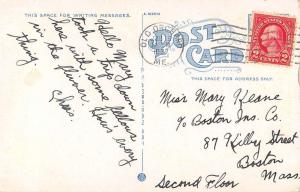 THIS SPACE FOR WRITING MESSAGES.
POST CARD
THIS SPACE FOR ADDRESS ONLY.
ME.
2 CENTS 2
Hello Mary down
took a trip
here with some fellows
in the runner. How's every
thing
Chas.
Miss Mary Keane
c/o Boston Ins. Co.
87 Kilby Street
Boston
Mass.
Second Floor